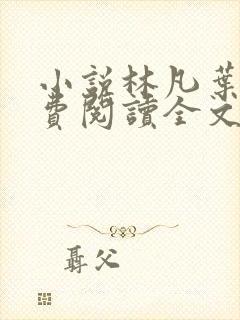 小説林凡葉
費閱讀全文
聶父